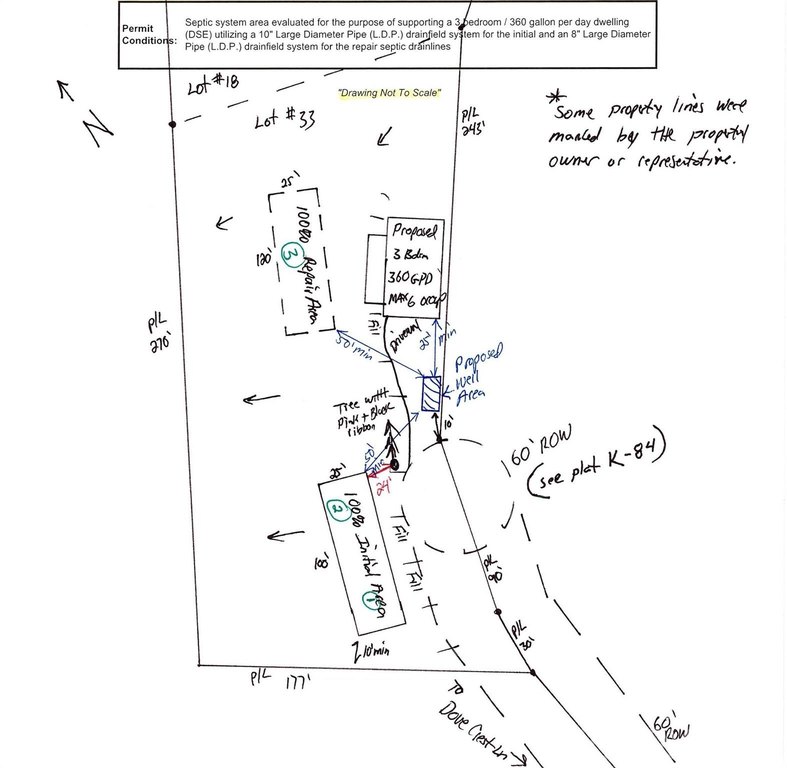 Permit
Conditions:
Septic system area evaluated for the purpose of supporting a 3 bedroom / 360 gallon per day dwelling
(DSE) utilizing a 10" Large Diameter Pipe (L.D.P.) drainfield system for the initial and an 8" Large Diameter
Pipe (L.D.P.) drainfield system for the repair septic drainlines
Lot #18
"Drawing Not To Scale"
N
Lot #33
P/L
243'
* Some property lines were
marked by the property
owner or representative.
25'
100% Repair Area
3
120'
Proposed
3 Bdrm
360 GPD
MAX 6 occup
P/L
270'
Fill
Driveway
25' min
50' min
Proposed
Well
Area
Tree with
Pink + Black
ribbon
10'
60' ROW
(see plat K-84)
50' min
25'
24'
100% Initial Area
2
1
100'
Fill
Fill
P/L
90'
P/L
30'
10' min
P/L 177'
To
Dove Crest Ln
60'
ROW